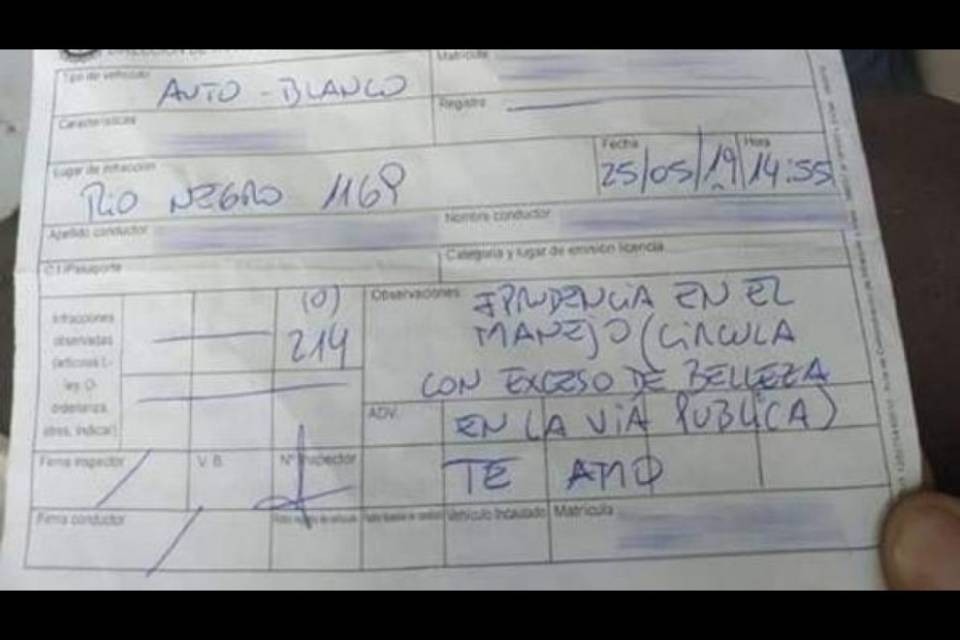 DIRECCIÓN DE
Tipo de vehículo
AUTO - BLANCO
Matrícula
Registro
Características
Lugar de infracción
RIO NEGRO 1169
Fecha
25/05/19
Hora
14:55
Apellido conductor
Nombre conductor
C.I/Pasaporte
Categoría y lugar de emisión licencia
Infracciones
observadas
(artículos L-
ley, O-
ordenanza,
otras, indicar)
(O)
214
Observaciones
IPRUDENCIA EN EL
MANEJO (CIRCULA
CON EXCESO DE BELLEZA
ADV.
EN LA VIA PUBLICA)
TE AMO
Firma inspector
V. B.
Nº Inspector
Firma conductor
Vehículo Incautado
Matrícula